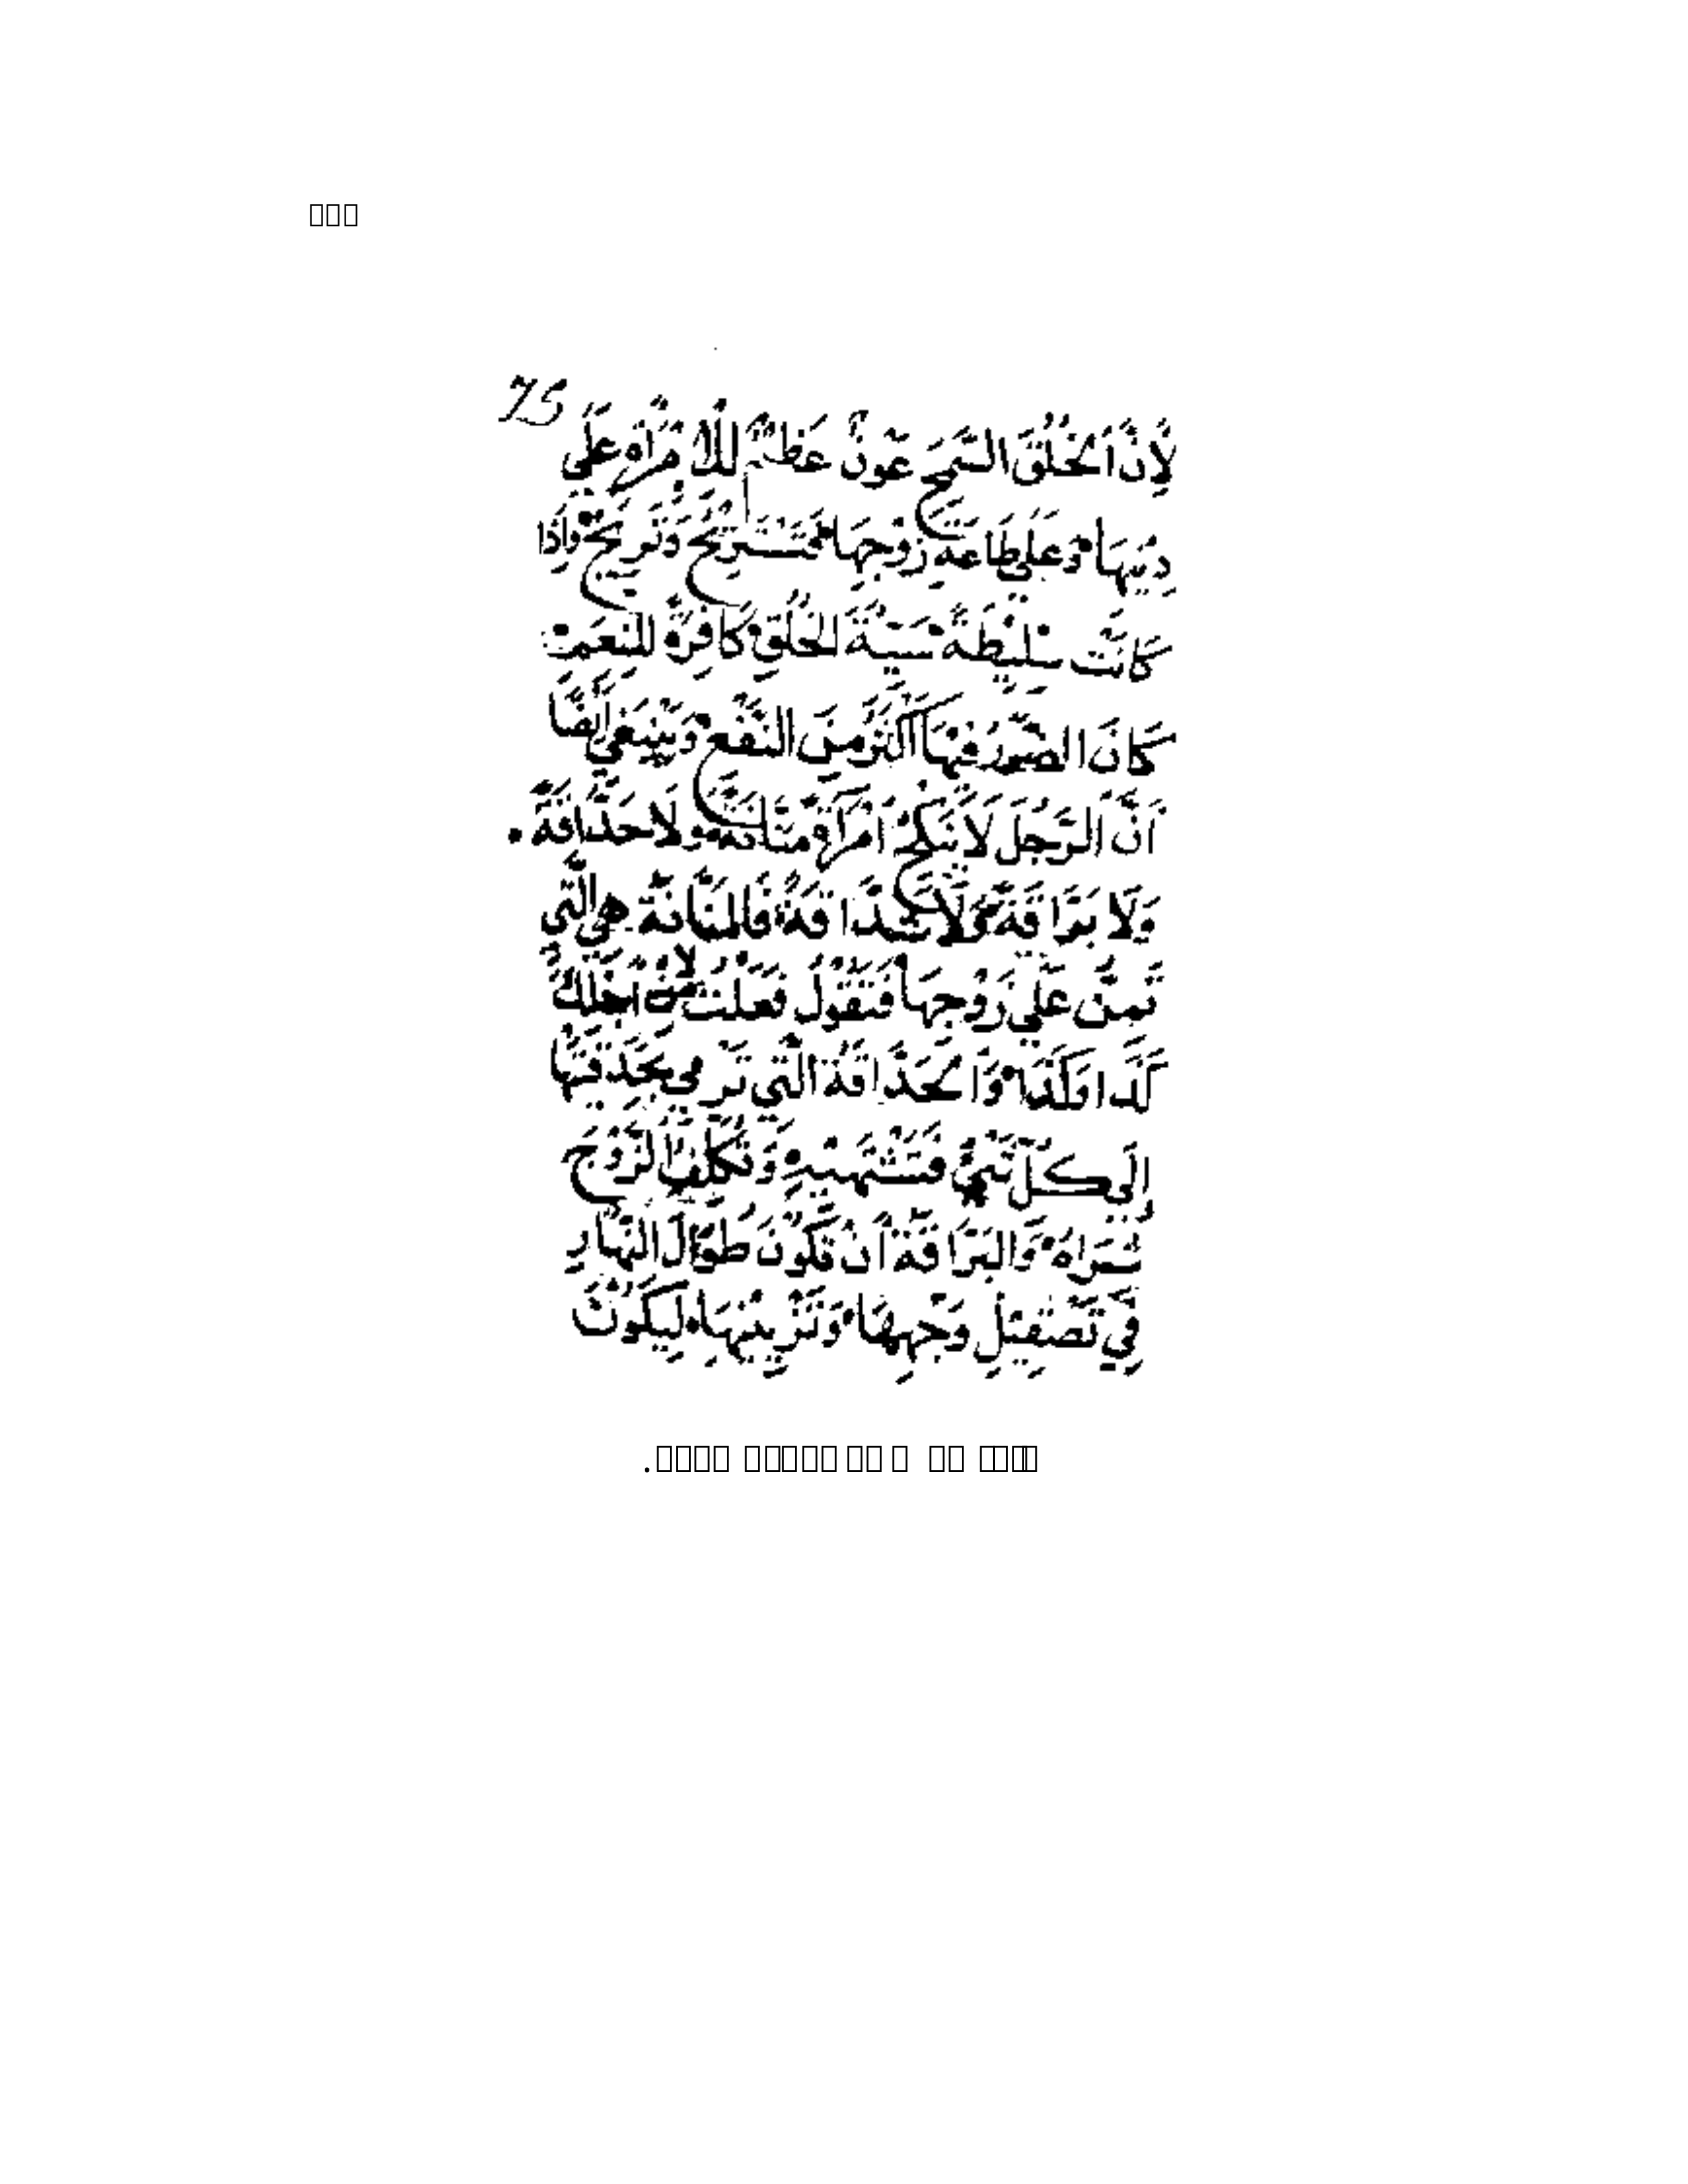 75
لِأَنَّ الْخُلُقَ السَّمِحَ عَوْنٌ عَظِيمٌ لِلْامْرَأَةِ عَلَى
دِينِهَا وَعَلَى طَاعَةِ زَوْجِهَا فَتَسْتَرِيحُ وَتُرِيحُ وَإِذَا
كَانَتْ سَلِيطَةً سَيِّئَةَ الْخُلُقِ كَافِرَةً لِلنِّعَمِ
كَانَ الضَّرَرُ مِنْهَا أَكْثَرَ مِنَ النَّفْعِ وَيَنْبَغِي أَيْضًا
أَنَّ الرَّجُلَ لَا يَنْكِحُ امْرَأَةً مَنَّانَةً وَلَا حَدَّاقَةً.
وَلَا بَرَّاقَةً وَلَا حَدَّاقَةً فَالْمَنَّانَةُ هِيَ الَّتِي
تَمُنُّ عَلَى زَوْجِهَا فَتَقُولُ فَعَلْتُ لِأَجْلِكَ
كَذَا وَكَذَا وَالْحَدَّاقَةُ الَّتِي تَرْمِي بِحَدَقَتِهَا
إِلَى كُلِّ شَيْءٍ فَتَشْتَهِيهِ وَتُكَلِّفُ الزَّوْجَ
شِرَاهُ وَالْبَرَّاقَةُ أَنْ تَكُونَ طُولَ النَّهَارِ
فِي تَصْقِيلِ وَجْهِهَا وَتَزْيِينِهَا لِيَكُونَ